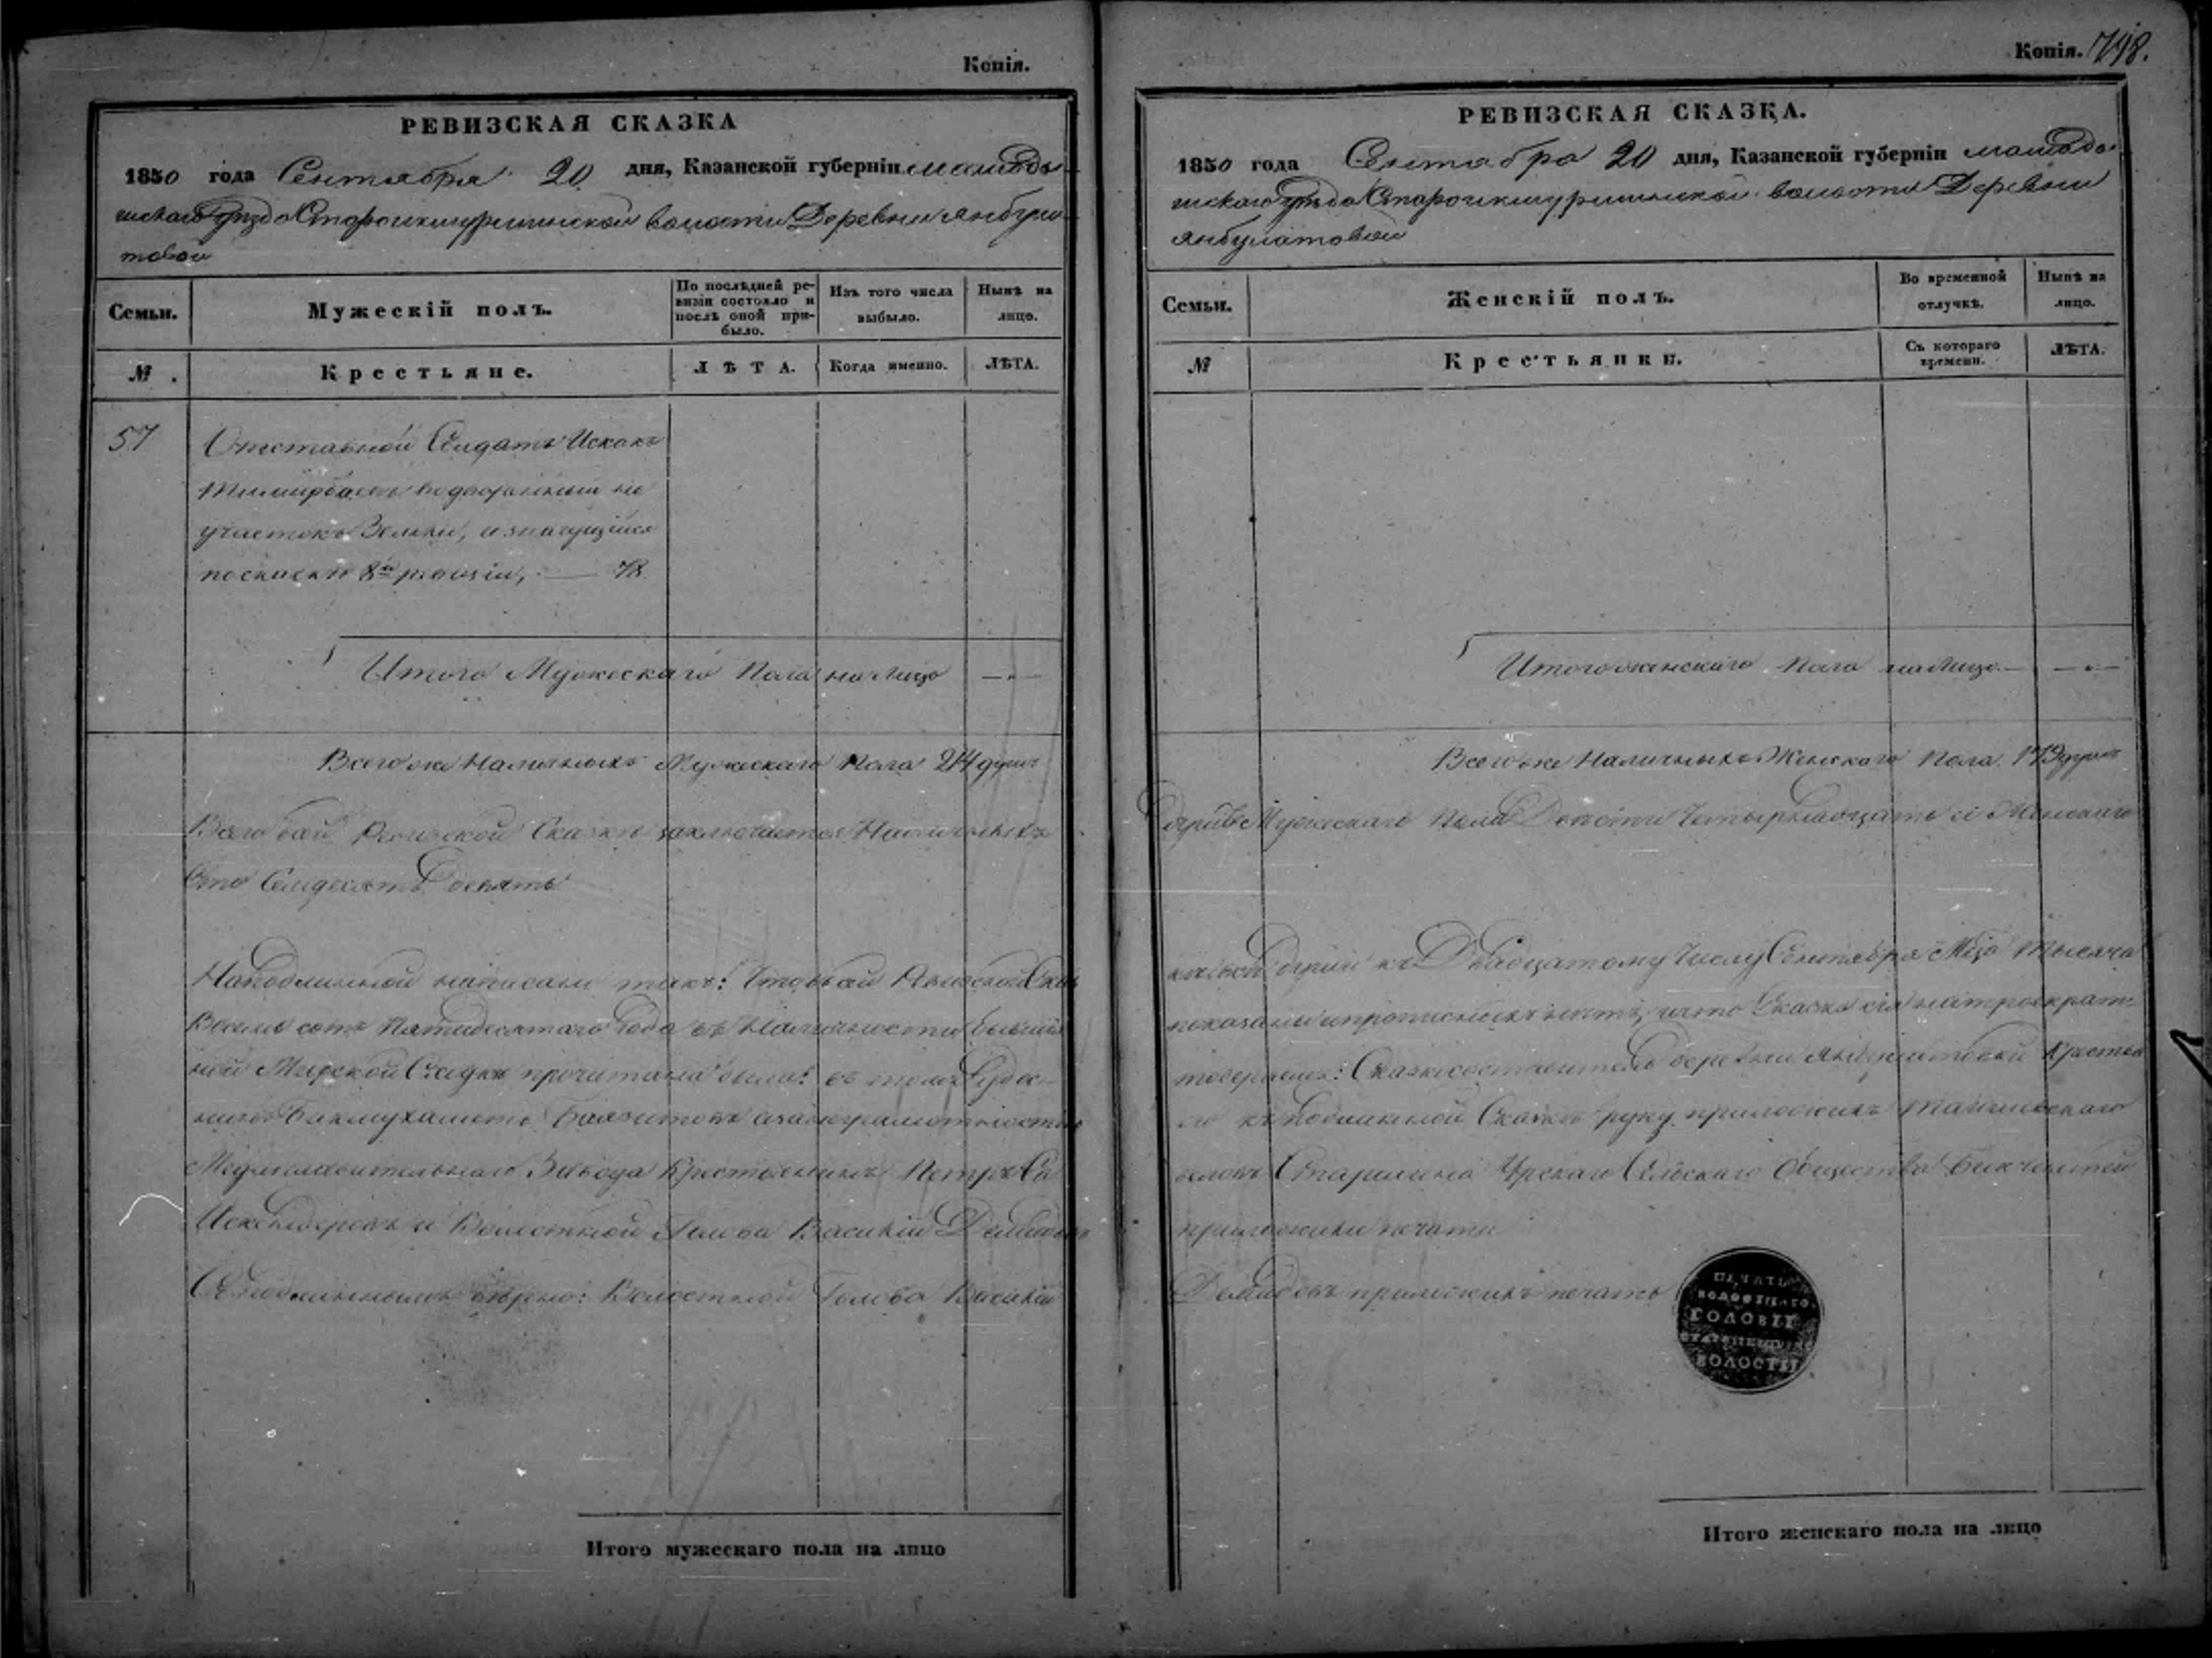 Копія.
РЕВИЗСКАЯ СКАЗКА
1850 года Сентября 20 дня, Казанской губерніи мамады-
шскаго уѣзда Старочишурминской волости Деревни Янбула-
товой
Семьи.
Мужескій полъ.
По послѣдней ре-
визіи состояло и
послѣ оной при-
было.
Изъ того числа
выбыло.
Нынѣ на
лицо.
№
Крестьяне.
ЛѢТА.
Когда именно.
ЛѢТА.
57
Отставной Солдатъ Исхакъ
водворенный на
участокъ Земли, и значущійся
по сказкѣ 8й ревизіи, — 78.
Итого Мужескаго Пола на Лицо — „ —
Всего же Наличныхъ Мужескаго Пола 214 душъ
Всего въ сей Ревизской Сказкѣ заключается Наличныхъ
Сто Семдесятъ девять
На подлинной написано такъ: Что въ сей Ревизской Сказ
Восемь сотъ Пятидесятаго Года въ Наличности бывшія
ной Мирской Сходкѣ прочитана была: въ томъ
Баязитовъ а за неграмотностію
Медиплавительнаго Завода Крестьянинъ Петръ Са
и Волостной Голова Василій Демидовъ
Съ подлиннымъ вѣрно: Волостной Голова Василій
Итого мужескаго пола на лицо
Копія. 798.
РЕВИЗСКАЯ СКАЗКА.
1850 года Сентября 20 дня, Казанской губерніи мамады-
шскаго уѣзда Старочишурминской волости Деревни
Янбулатовой
Семьи.
Женскій полъ.
Во временной
отлучкѣ.
Нынѣ на
лицо.
№
Крестьянки.
Съ котораго
времени.
ЛѢТА.
Итого женскаго Пола на Лицо — „ —
Всего же Наличныхъ Женскаго Пола 179 душъ
душъ Мужескаго Пола Двѣсти Четырнадцать и Женскаго
кѣ всѣ души къ Двадцатому Числу Сентября Мѣца Тысяча
показаны и прописныхъ нѣтъ, и что Сказка сія на троекрат-
Сказкосоставитель деревни Янбулатовой Крестья
къ подлинной Сказкѣ руку приложилъ
Старшина Урскаго Сельскаго Общества
приложили печати
Демидовъ приложилъ печать
ПЕЧАТЬ
ВОЛОСТНАГО
ГОЛОВЫ
ВОЛОСТИ
Итого женскаго пола на лицо